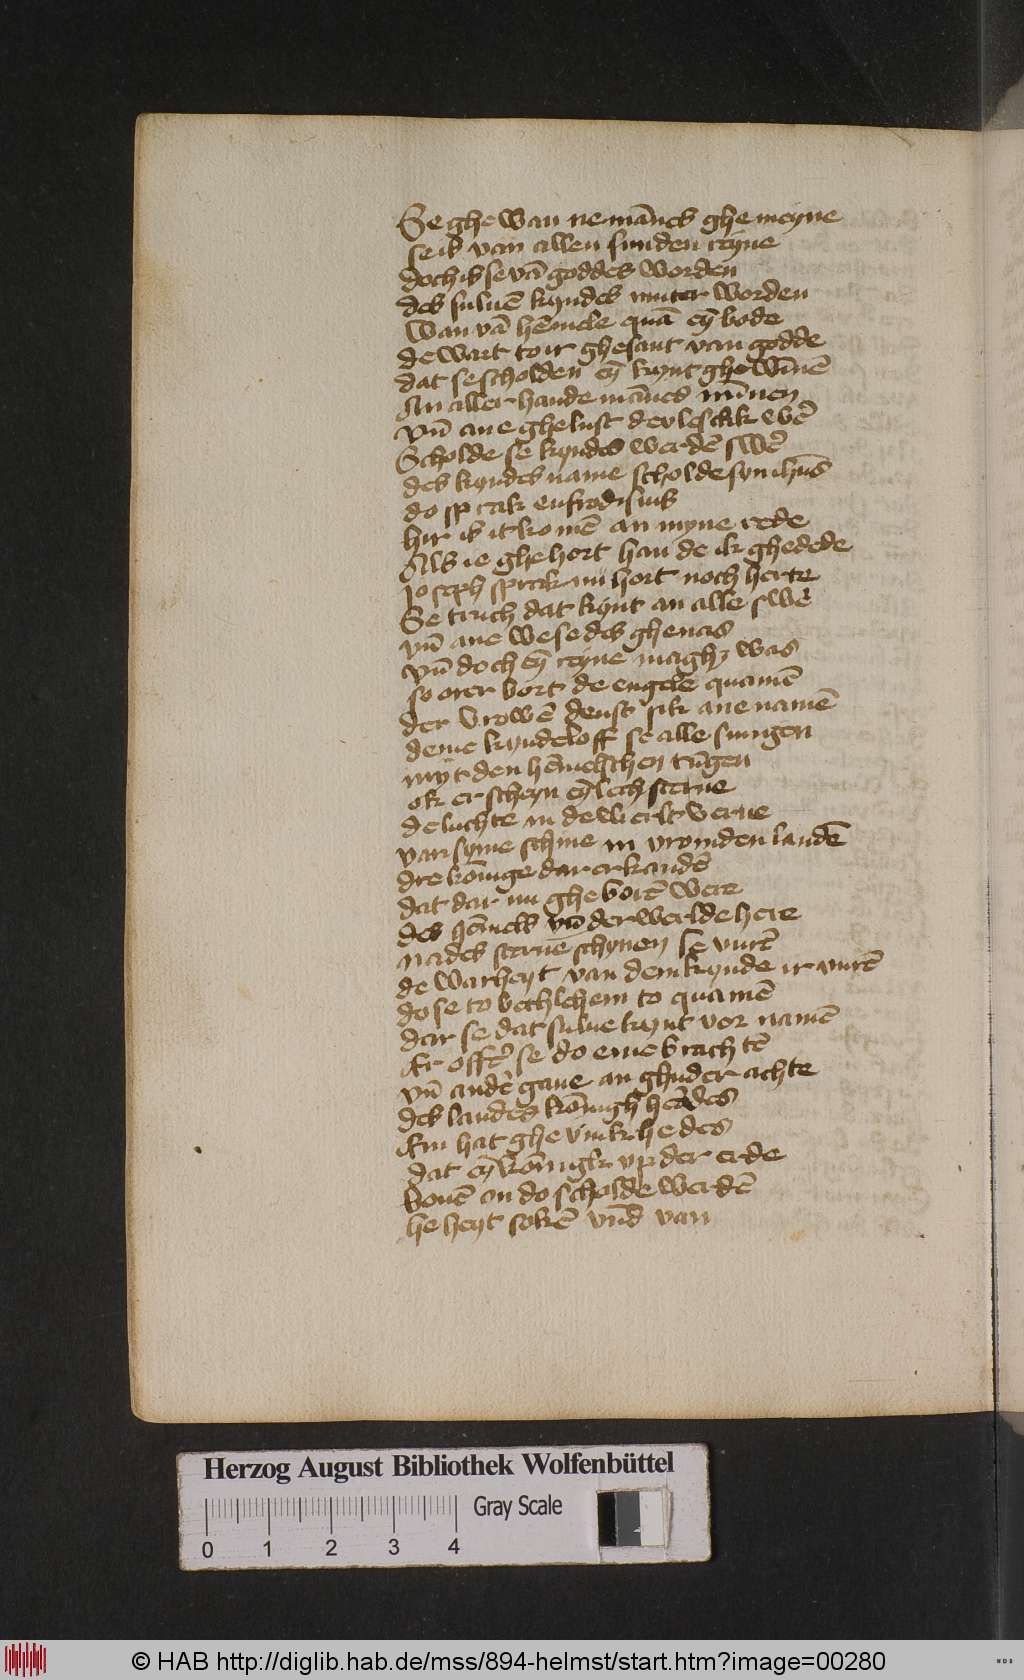 Se ghe wan ne mānes ghe meyne
se is van allen sunden reyne
doch is se vā goddes worden
des suluē kyndes muter worden
Wan vā hēmele quā eȳ bode
de wart to ir ghesant van godde
dat se scholden eȳ kynt ghe wīnē
An aller hande mānes mīnen
vn̄ ane ghelust
Scholde se kyndes werdē swē
des kyndes name scholde syn ihūs
do sprak eufrodisius
hir is it komē an myne rede
Als ie ghe hort han de ik ghedede
Joseph sprak nu hort noch herte
Se truch dat kynt an alle swē
vn̄ ane we se des ghenas
vn̄ doch eȳ reyne maghꝫ was
so orer bort de engele quamē
der vrowē denst sik ane namē
deme kynde loff se alle sungen
myt den hēmelschen tūgen
ok erscheyn eȳ lech sterne
de luchte in de werlt verne
van syme schine in vromden landē
dre kōnige dar erkandē
dat dar nu ghe borē were
des hēmels vn̄ der werlde here
na des sterne schynen se vurē
de warheyt van dem kynde ir vurē
do se to bethlehem to quamē
dar se dat sulue kynt vor namē
Er offer se do eme brachtē
vn̄ andē gaue an ghuder achte
des landes kōnigh herodes
Em hat ghe
dat eȳ kōnigk vp der erde
bouē en do scholde werdē
he heyt sokē vnd van
Herzog August Bibliothek Wolfenbüttel
Gray Scale
0 1 2 3 4
© HAB http://diglib.hab.de/mss/894-helmst/start.htm?image=00280